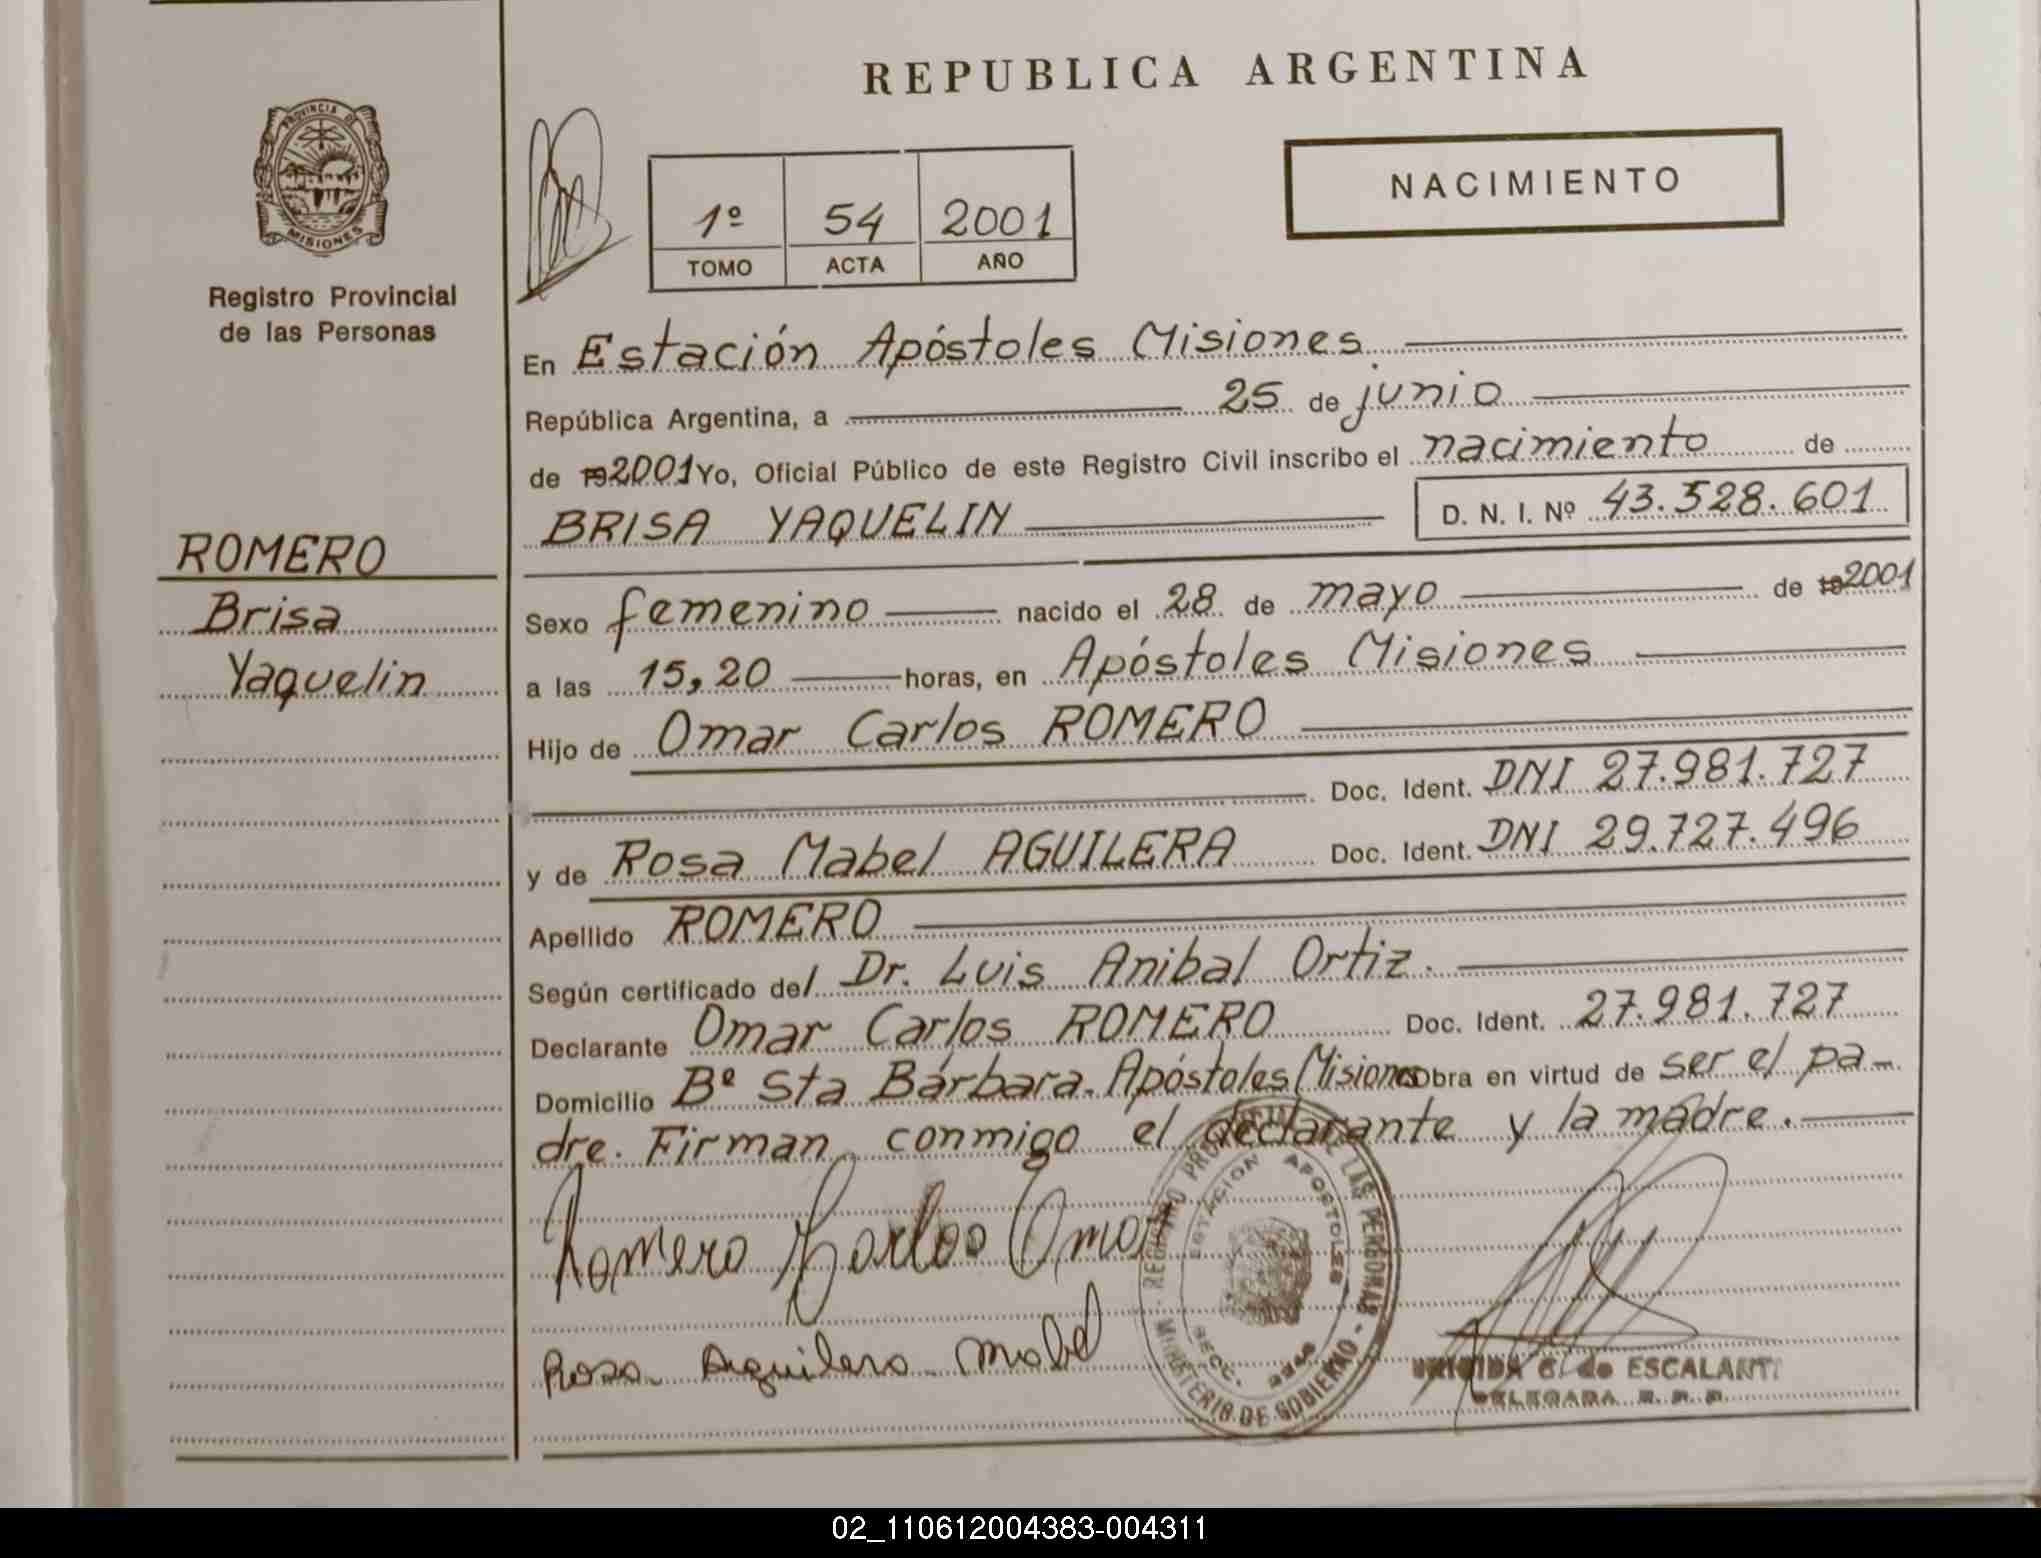 REPUBLICA ARGENTINA
PROVINCIA DE
MISIONES
Registro Provincial
de las Personas
NACIMIENTO
1º 54 2001
TOMO ACTA AÑO
En Estación Apóstoles Misiones
República Argentina, a 25 de junio
de 19 2001 Yo, Oficial Público de este Registro Civil inscribo el nacimiento de
BRISA YAQUELIN D. N. I. Nº 43.528.601
ROMERO
Brisa
Yaquelin
Sexo femenino nacido el 28 de mayo de 19 2001
a las 15,20 horas, en Apóstoles Misiones
Hijo de Omar Carlos ROMERO
Doc. Ident. DNI 27.981.727
y de Rosa Mabel AGUILERA Doc. Ident. DNI 29.727.496
Apellido ROMERO
Según certificado del Dr. Luis Anibal Ortiz.
Declarante Omar Carlos ROMERO Doc. Ident. 27.981.727
Domicilio Bº Sta Bárbara. Apóstoles Misiones Obra en virtud de ser el pa-
dre. Firman conmigo el declarante y la madre.
Romero Carlos Omar
Rosa Aguilera Mabel
REGISTRO PROVINCIAL DE LAS PERSONAS - MINISTERIO DE GOBIERNO -
ESTACION APOSTOLES
SECC.
C. de ESCALANT
DELEGADA R. P. P.
02_110612004383-004311